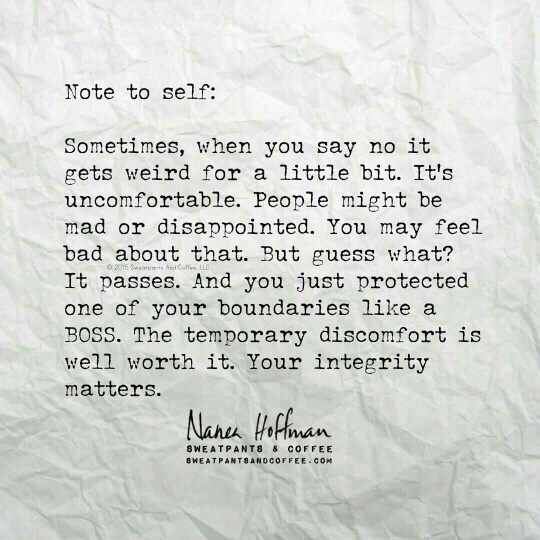 Note to self:
Sometimes, when you say no it
gets weird for a little bit. It's
uncomfortable. People might be
mad or disappointed. You may feel
bad about that. But guess what?
© 2015 Sweatpants And Coffee, LLC
It passes. And you just protected
one of your boundaries like a
BOSS. The temporary discomfort is
well worth it. Your integrity
matters.
Nanea Hoffman
SWEATPANTS & COFFEE
SWEATPANTSANDCOFFEE.COM